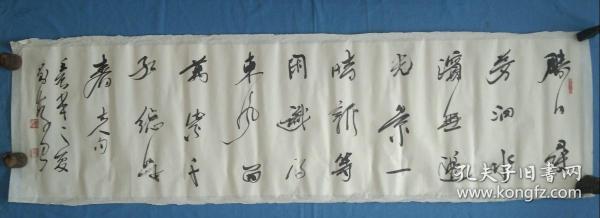 勝日尋
芳泗水
濱無邊
光景一
時新等
閑識得
東風面
萬紫千
紅總是
春
孔夫子旧书网
www.kongfz.com